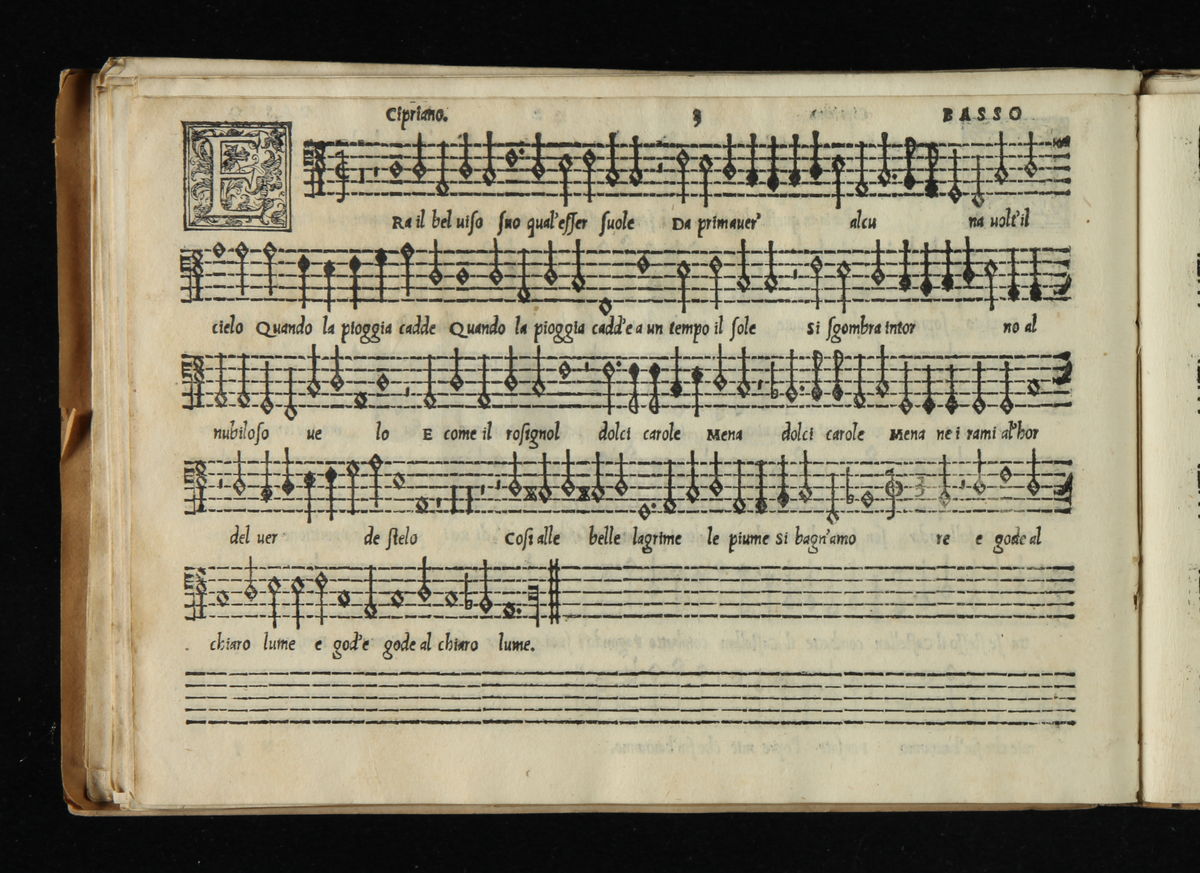 Cipriano. 8 BASSO
ERa il bel uiso suo qual'esser suole Da primauer' alcu na uolt'il
cielo Quando la pioggia cadde Quando la pioggia cadd'e a un tempo il sole Si sgombra intor no al
nubiloso ue lo E come il rosignol dolci carole Mena dolci carole Mena ne i rami al'hor
del uer de stelo Cosi alle belle lagrime le piume Si bagn'amo re e gode al
chiaro lume e god'e gode al chiaro lume.